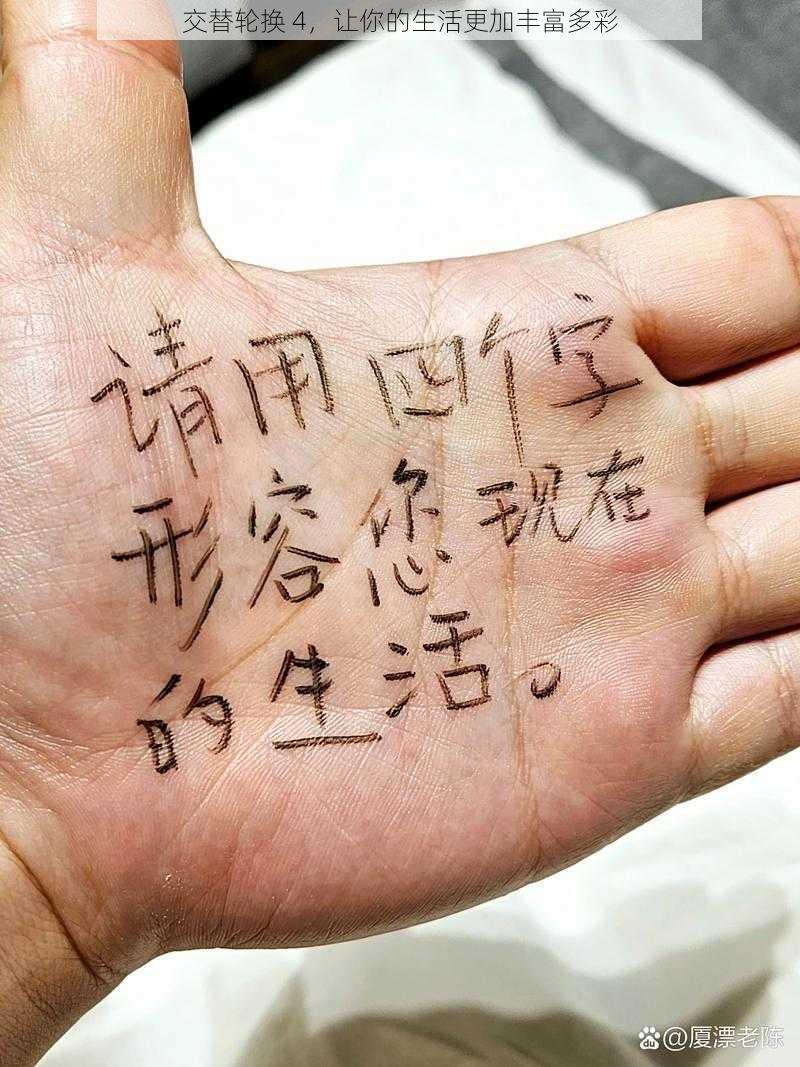 交替轮换 4，让你的生活更加丰富多彩
请用四个字
形容您现在
的生活。
@厦漂老陈